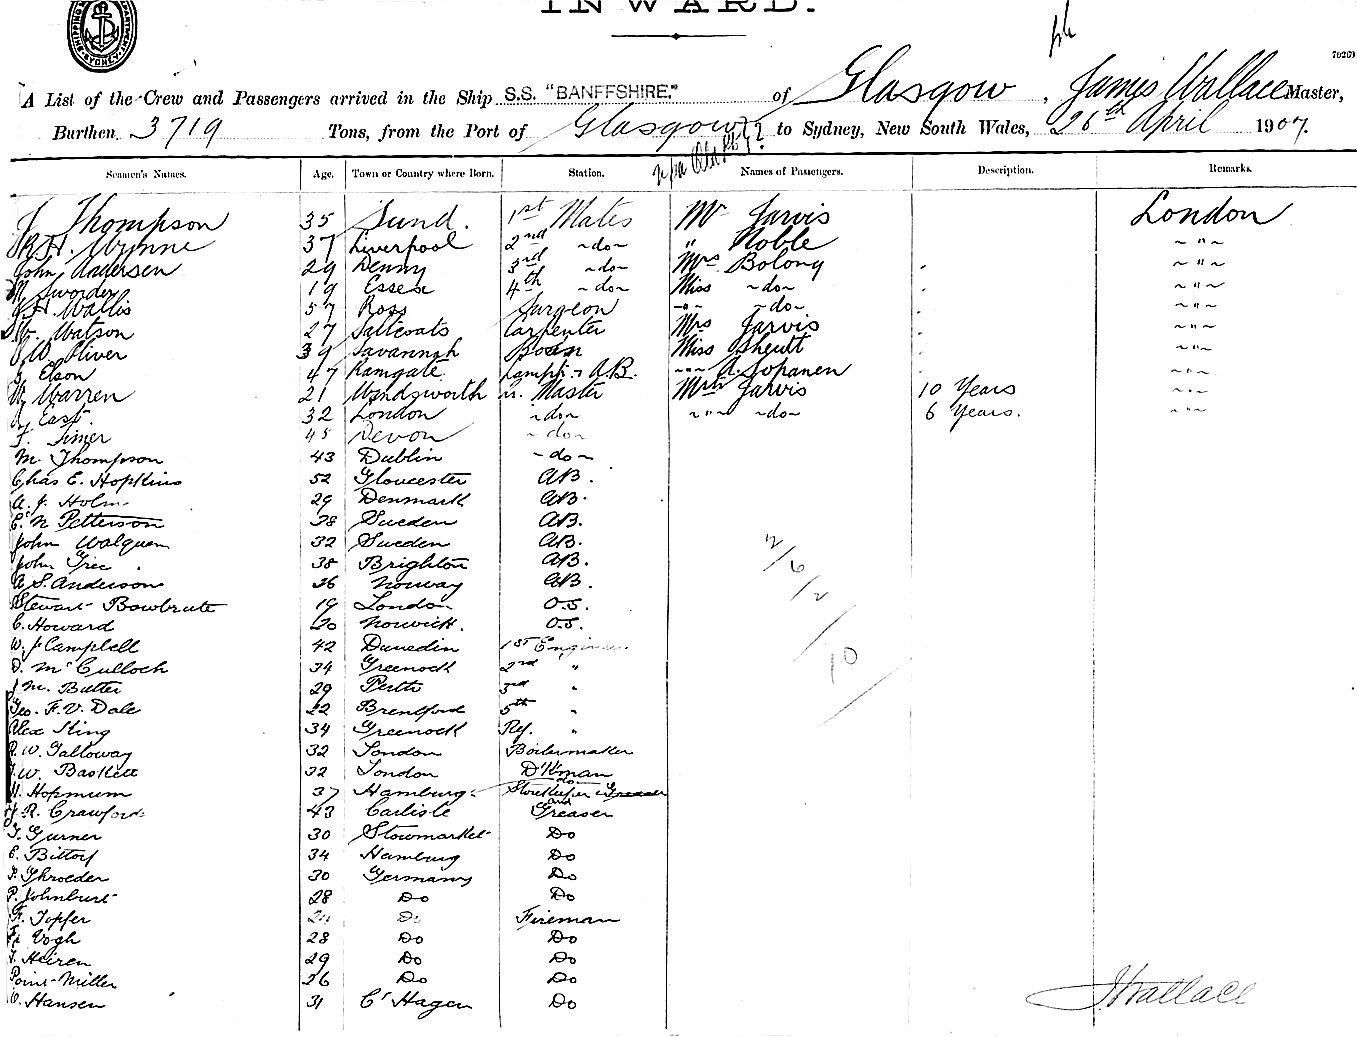 INWARD.
SHIPPING SYDNEY
7026)
A List of the Crew and Passengers arrived in the Ship S.S. "BANFFSHIRE." of Glasgow, James Wallace Master,
Burthen 3719 Tons, from the Port of Glasgow to Sydney, New South Wales, 26th April 1907.
Seamen's Names. Age. Town or Country where Born. Station. Names of Passengers. Description. Remarks.
J Thompson 35 Sund. 1st Mates Mr Jarvis London
R.H. Wynne 37 Liverpool 2nd ~do~ " Noble ~"~
John Andersen 29 Denny 3rd ~do~ Mrs Bolony ~"~
Sworder 19 Essex 4th ~do~ Miss ~do~ ~"~
H. Wallis 57 Ross Surgeon ~"~ ~do~ ~"~
W. Watson 27 Saltcoats Carpenter Mrs Jarvis ~"~
W. Oliver 39 Savannah Bosn Miss ~"~
Elson 47 Ramgate Lamps & A.B. ~"~ A. Sopanen ~"~
W. Warren 21 Wandsworth Qr. Master Jarvis 10 Years ~"~
East. 32 London ~do~ ~"~ ~do~ 6 Years. ~"~
F. 45 Devon ~do~
M. Thompson 43 Dublin ~do~
Chas E. Hopkins 52 Gloucester AB.
A. J. Holm 29 Denmark AB.
E. N Petterson 38 Sweden AB.
John Walquen 32 Sweden AB.
John Grec 38 Brighton AB.
A S. Anderson 26 Norway AB.
Stewart Bowbrute 19 London O.S.
C. Howard 20 Norwich. O.S.
W. J Campbell 42 Dunedin 1st Engineer
D. McCulloch 34 Greenock 2nd "
J M. Butter 29 Perth 3rd "
Geo. F. V. Dale 22 Brentford 5th "
Alex Sting 34 Greenock Ref. "
R. W. Galloway 32 London Boilermaker
W. Baskett 32 London D'kman
H. Hopmum 37 Hamburg Storekeeper do Greaser
R. Crawford 43 Carlisle and Greaser
T. Gurner 30 Stowmarket Do
C. Bittorf 34 Hamburg Do
F. Shroeder 30 Germany Do
P. Johnburt 28 Do Do
F. Topfer Do Fireman
Vogh 28 Do Do
Heiren 29 Do Do
Point-Miller 26 Do Do
C. Hansen 31 C'Hagen Do
2/6/2
10
J Wallace